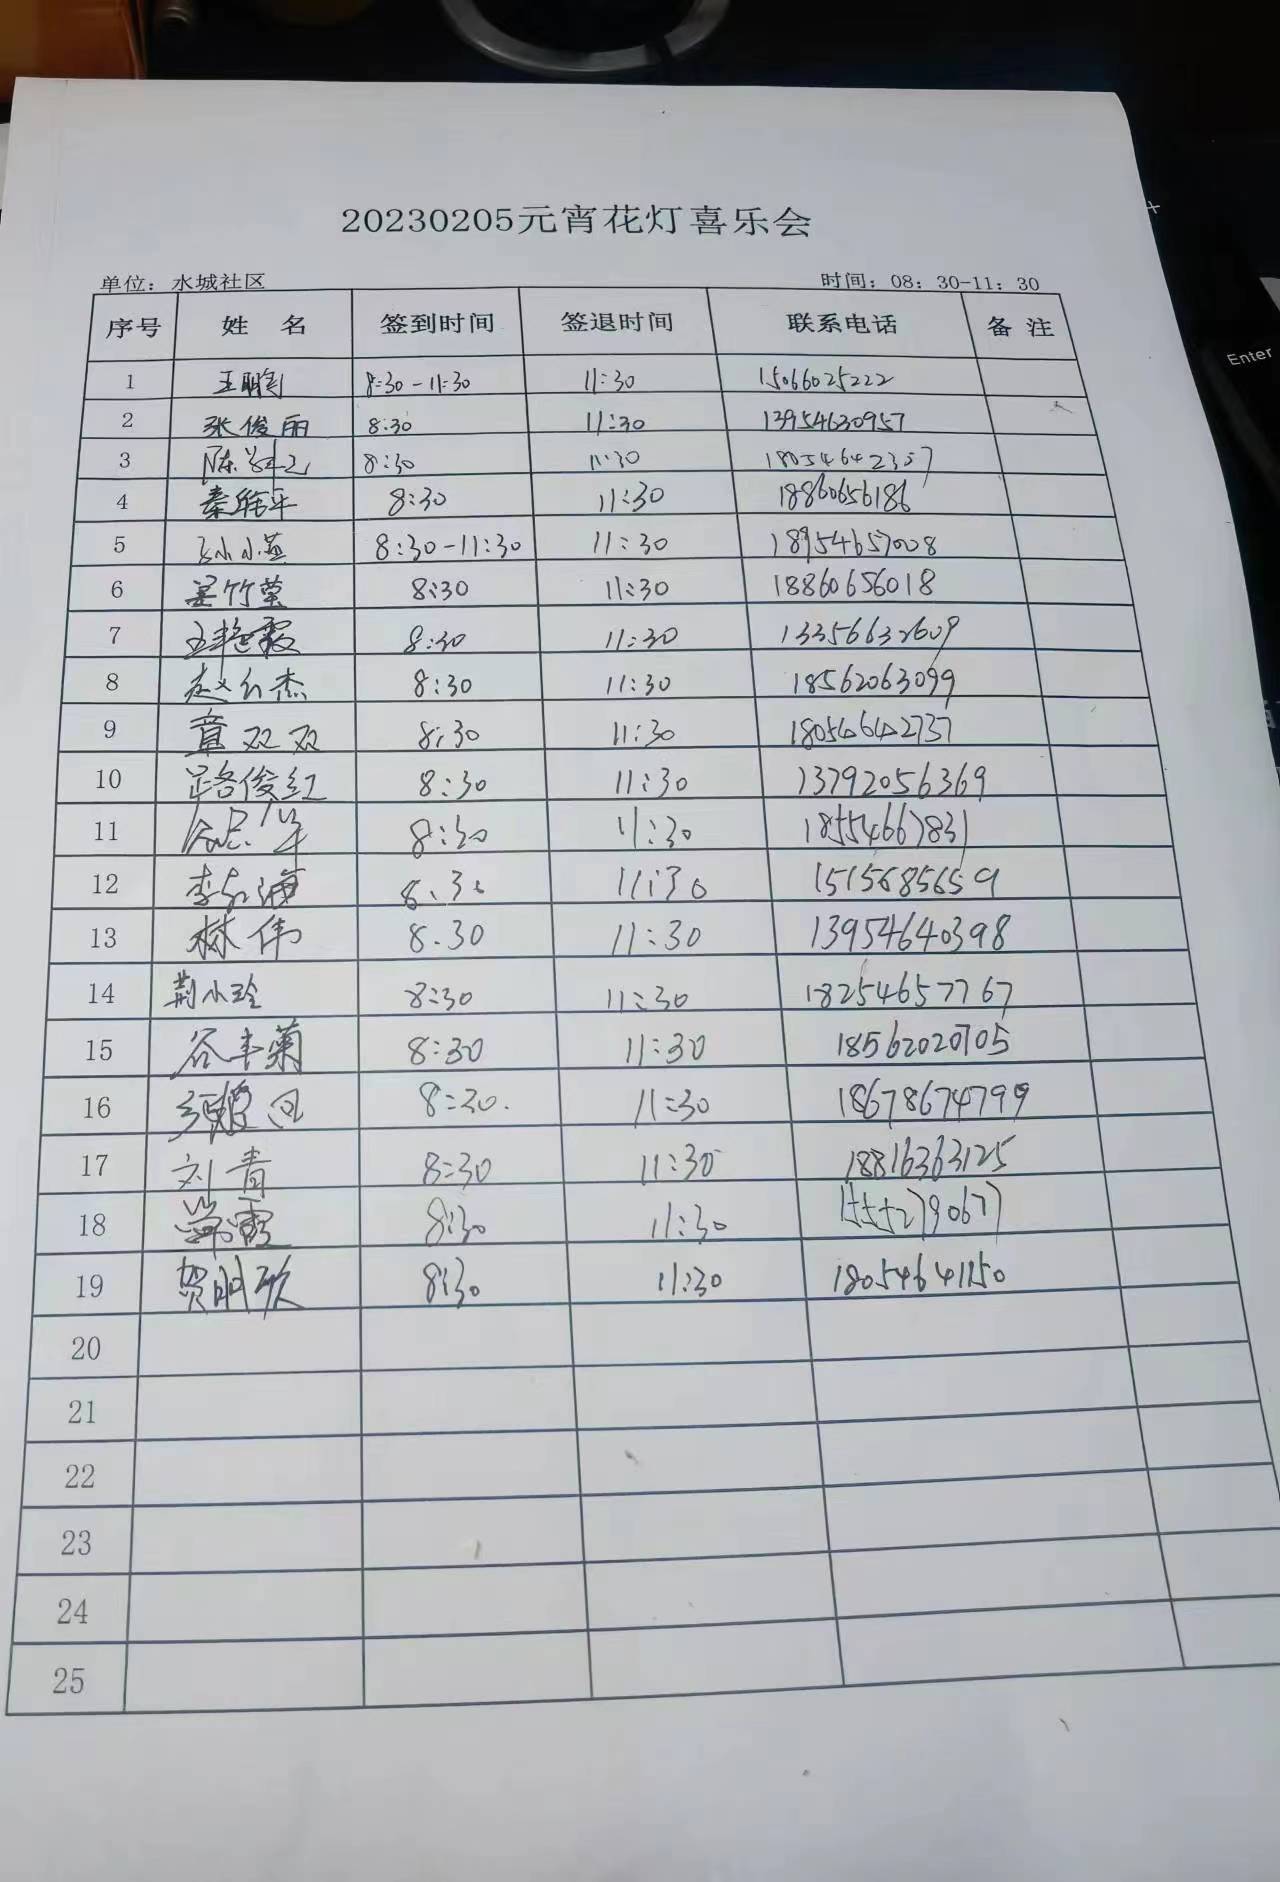 20230205元宵花灯喜乐会
单位：水城社区 时间：08：30-11：30
序号 姓 名 签到时间 签退时间 联系电话 备 注
1 王鹏 8:30-11:30 11:30 15066025222
2 张俊丽 8:30 11:30 13954630957
3 陈 8:30 11:30 18054642357
4 秦维平 8:30 11:30 18860656186
5 孙小燕 8:30-11:30 11:30 18954657008
6 竹莹 8:30 11:30 18860656018
7 王艳霞 8:30 11:30 13356632609
8 赵红杰 8:30 11:30 18562063099
9 章双双 8:30 11:30 18054642737
10 路俊红 8:30 11:30 13792056369
11 8:30 11:30 18554667831
12 李 8.30 11:30 1515685659
13 林伟 8.30 11:30 13954640398
14 荆小玲 8:30 11:30 18254657767
15 谷丰菊 8:30 11:30 18562020705
16 8:30. 11:30 18678674799
17 刘青 8:30 11:30 18816363125
18 霞 8:30 11:30 15552790677
19 贺明欣 8:30 11:30 18054641150
20
21
22
23
24
25
Enter